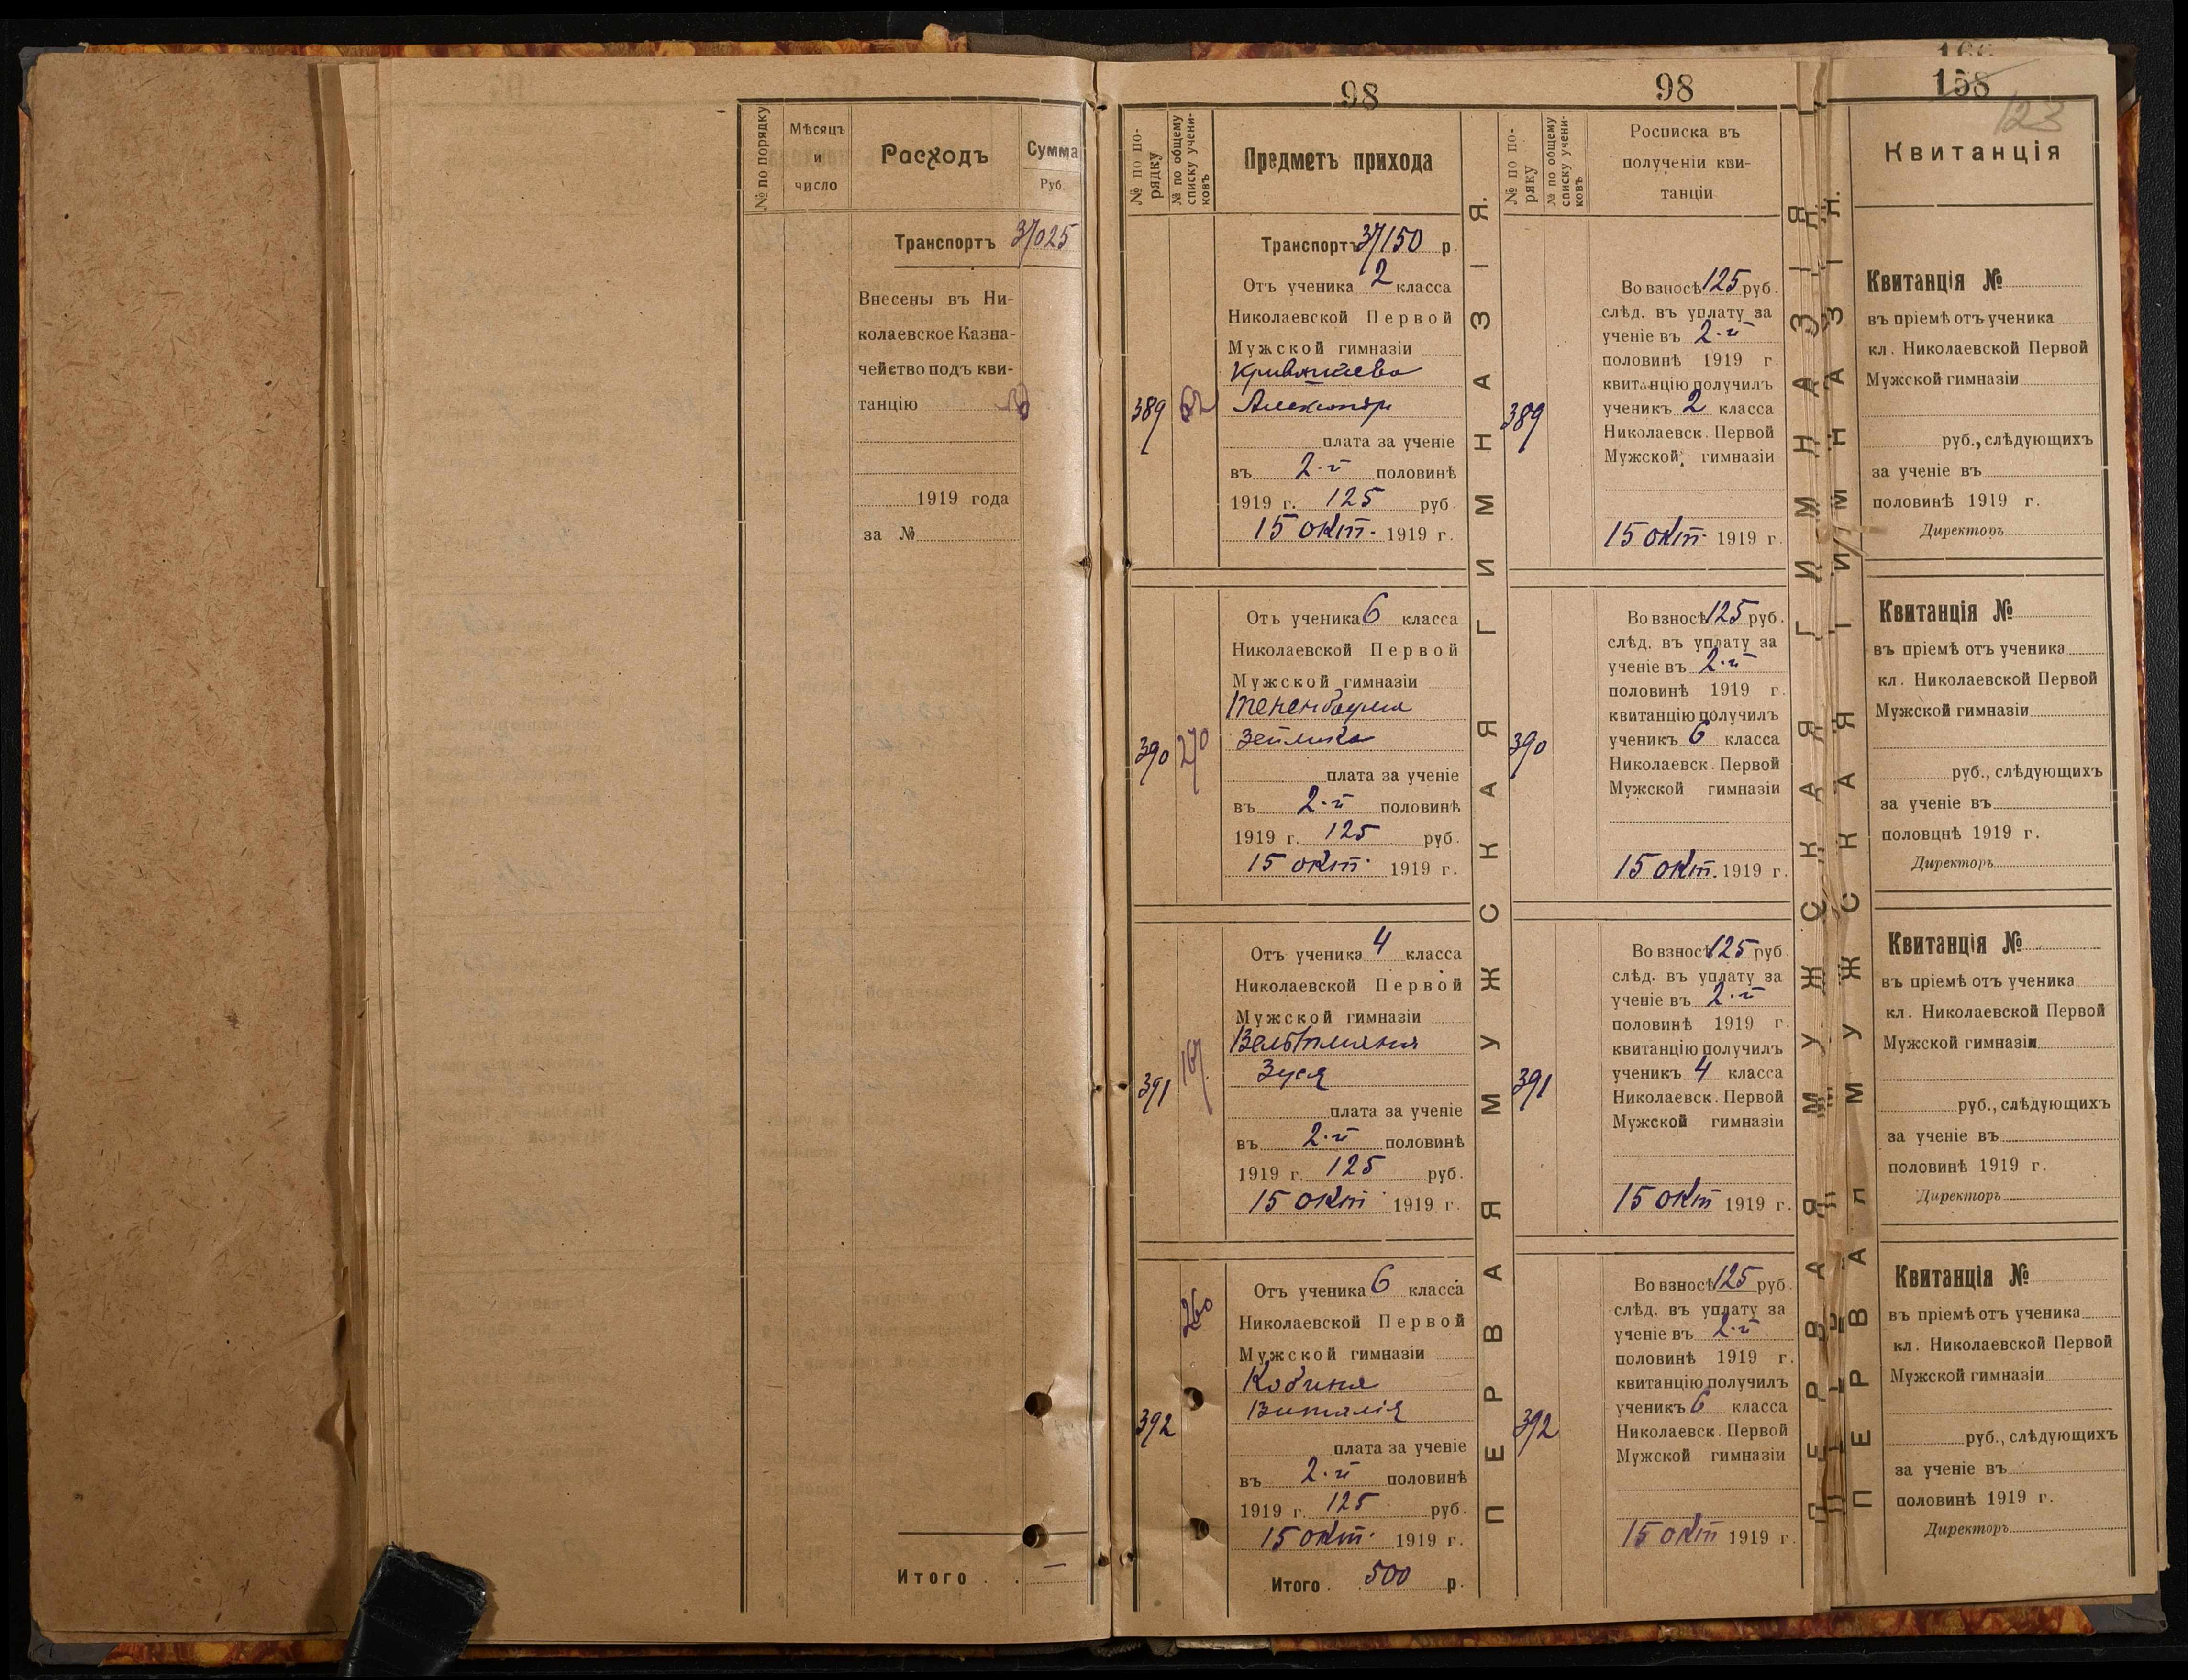 № по порядку
Мѣсяцъ
и
число
Расходъ
Сумма
Руб.
Транспортъ 37025
Внесены въ Ни-
колаевское Казна-
чейство подъ кви-
танцію
1919 года
за №
Итого . . —
98
№ по по-
рядку
№ по общему
списку учени-
ковъ
Предметъ прихода
Транспортъ 37150 р.
Отъ ученика 2 класса
Николаевской Первой
Мужской гимназіи
389
Александр
плата за ученіе
въ 2-й половинѣ
1919 г. 125 руб.
15 окт. 1919 г.
Отъ ученика 6 класса
Николаевской Первой
Мужской гимназіи
Тененбаума
390 270 Зейлика
плата за ученіе
въ 2-й половинѣ
1919 г. 125 руб.
15 окт. 1919 г.
Отъ ученика 4 класса
Николаевской Первой
Мужской гимназіи
Вельтмана
391 167 Зуся
плата за ученіе
въ 2-й половинѣ
1919 г. 125 руб.
15 окт 1919 г.
260 Отъ ученика 6 класса
Николаевской Первой
Мужской гимназіи
Кобина
392 Виталія
плата за ученіе
въ 2-й половинѣ
1919 г. 125 руб.
15 окт. 1919 г.
Итого . 500 р.
ПЕРВАЯ МУЖСКАЯ ГИМНАЗІЯ.
98
№ по по-
ряку
№ по общему
списку учени-
ковъ
Росписка въ
полученіи кви-
танціи
Во взносѣ 125 руб.
слѣд. въ уплату за
ученіе въ 2-й
половинѣ 1919 г.
квитанцію получилъ
389 ученикъ 2 класса
Николаевск. Первой
Мужской гимназіи
15 окт. 1919 г.
Во взносѣ 125 руб.
слѣд. въ уплату за
ученіе въ 2-й
половинѣ 1919 г.
квитанцію получилъ
390 ученикъ 6 класса
Николаевск. Первой
Мужской гимназіи
15 окт. 1919 г.
Во взносѣ 125 руб
слѣд. въ уплату за
ученіе въ 2-й
половинѣ 1919 г.
квитанцію получилъ
391 ученикъ 4 класса
Николаевск. Первой
Мужской гимназіи
15 окт 1919 г.
Во взносѣ 125 руб.
слѣд. въ уплату за
ученіе въ 2-й
половинѣ 1919 г.
квитанцію получилъ
392 ученикъ 6 класса
Николаевск. Первой
Мужской гимназіи
15 окт 1919 г.
ПЕРВАЯ МУЖСКАЯ ГИМНАЗІЯ
ПЕРВАЯ МУЖСКАЯ ГИМНАЗІЯ.
158
123
Квитанція
Квитанція №
въ пріемѣ отъ ученика
кл. Николаевской Первой
Мужской гимназіи
руб., слѣдующихъ
за ученіе въ
половинѣ 1919 г.
Директоръ
Квитанція №
въ пріемѣ отъ ученика
кл. Николаевской Первой
Мужской гимназіи
руб., слѣдующихъ
за ученіе въ
половцнѣ 1919 г.
Директоръ
Квитанція №
въ пріемѣ отъ ученика
кл. Николаевской Первой
Мужской гимназіи
руб., слѣдующихъ
за ученіе въ
половинѣ 1919 г.
Директоръ
Квитанція №
въ пріемѣ отъ ученика
кл. Николаевской Первой
Мужской гимназіи
руб., слѣдующихъ
за ученіе въ
половинѣ 1919 г.
Директоръ